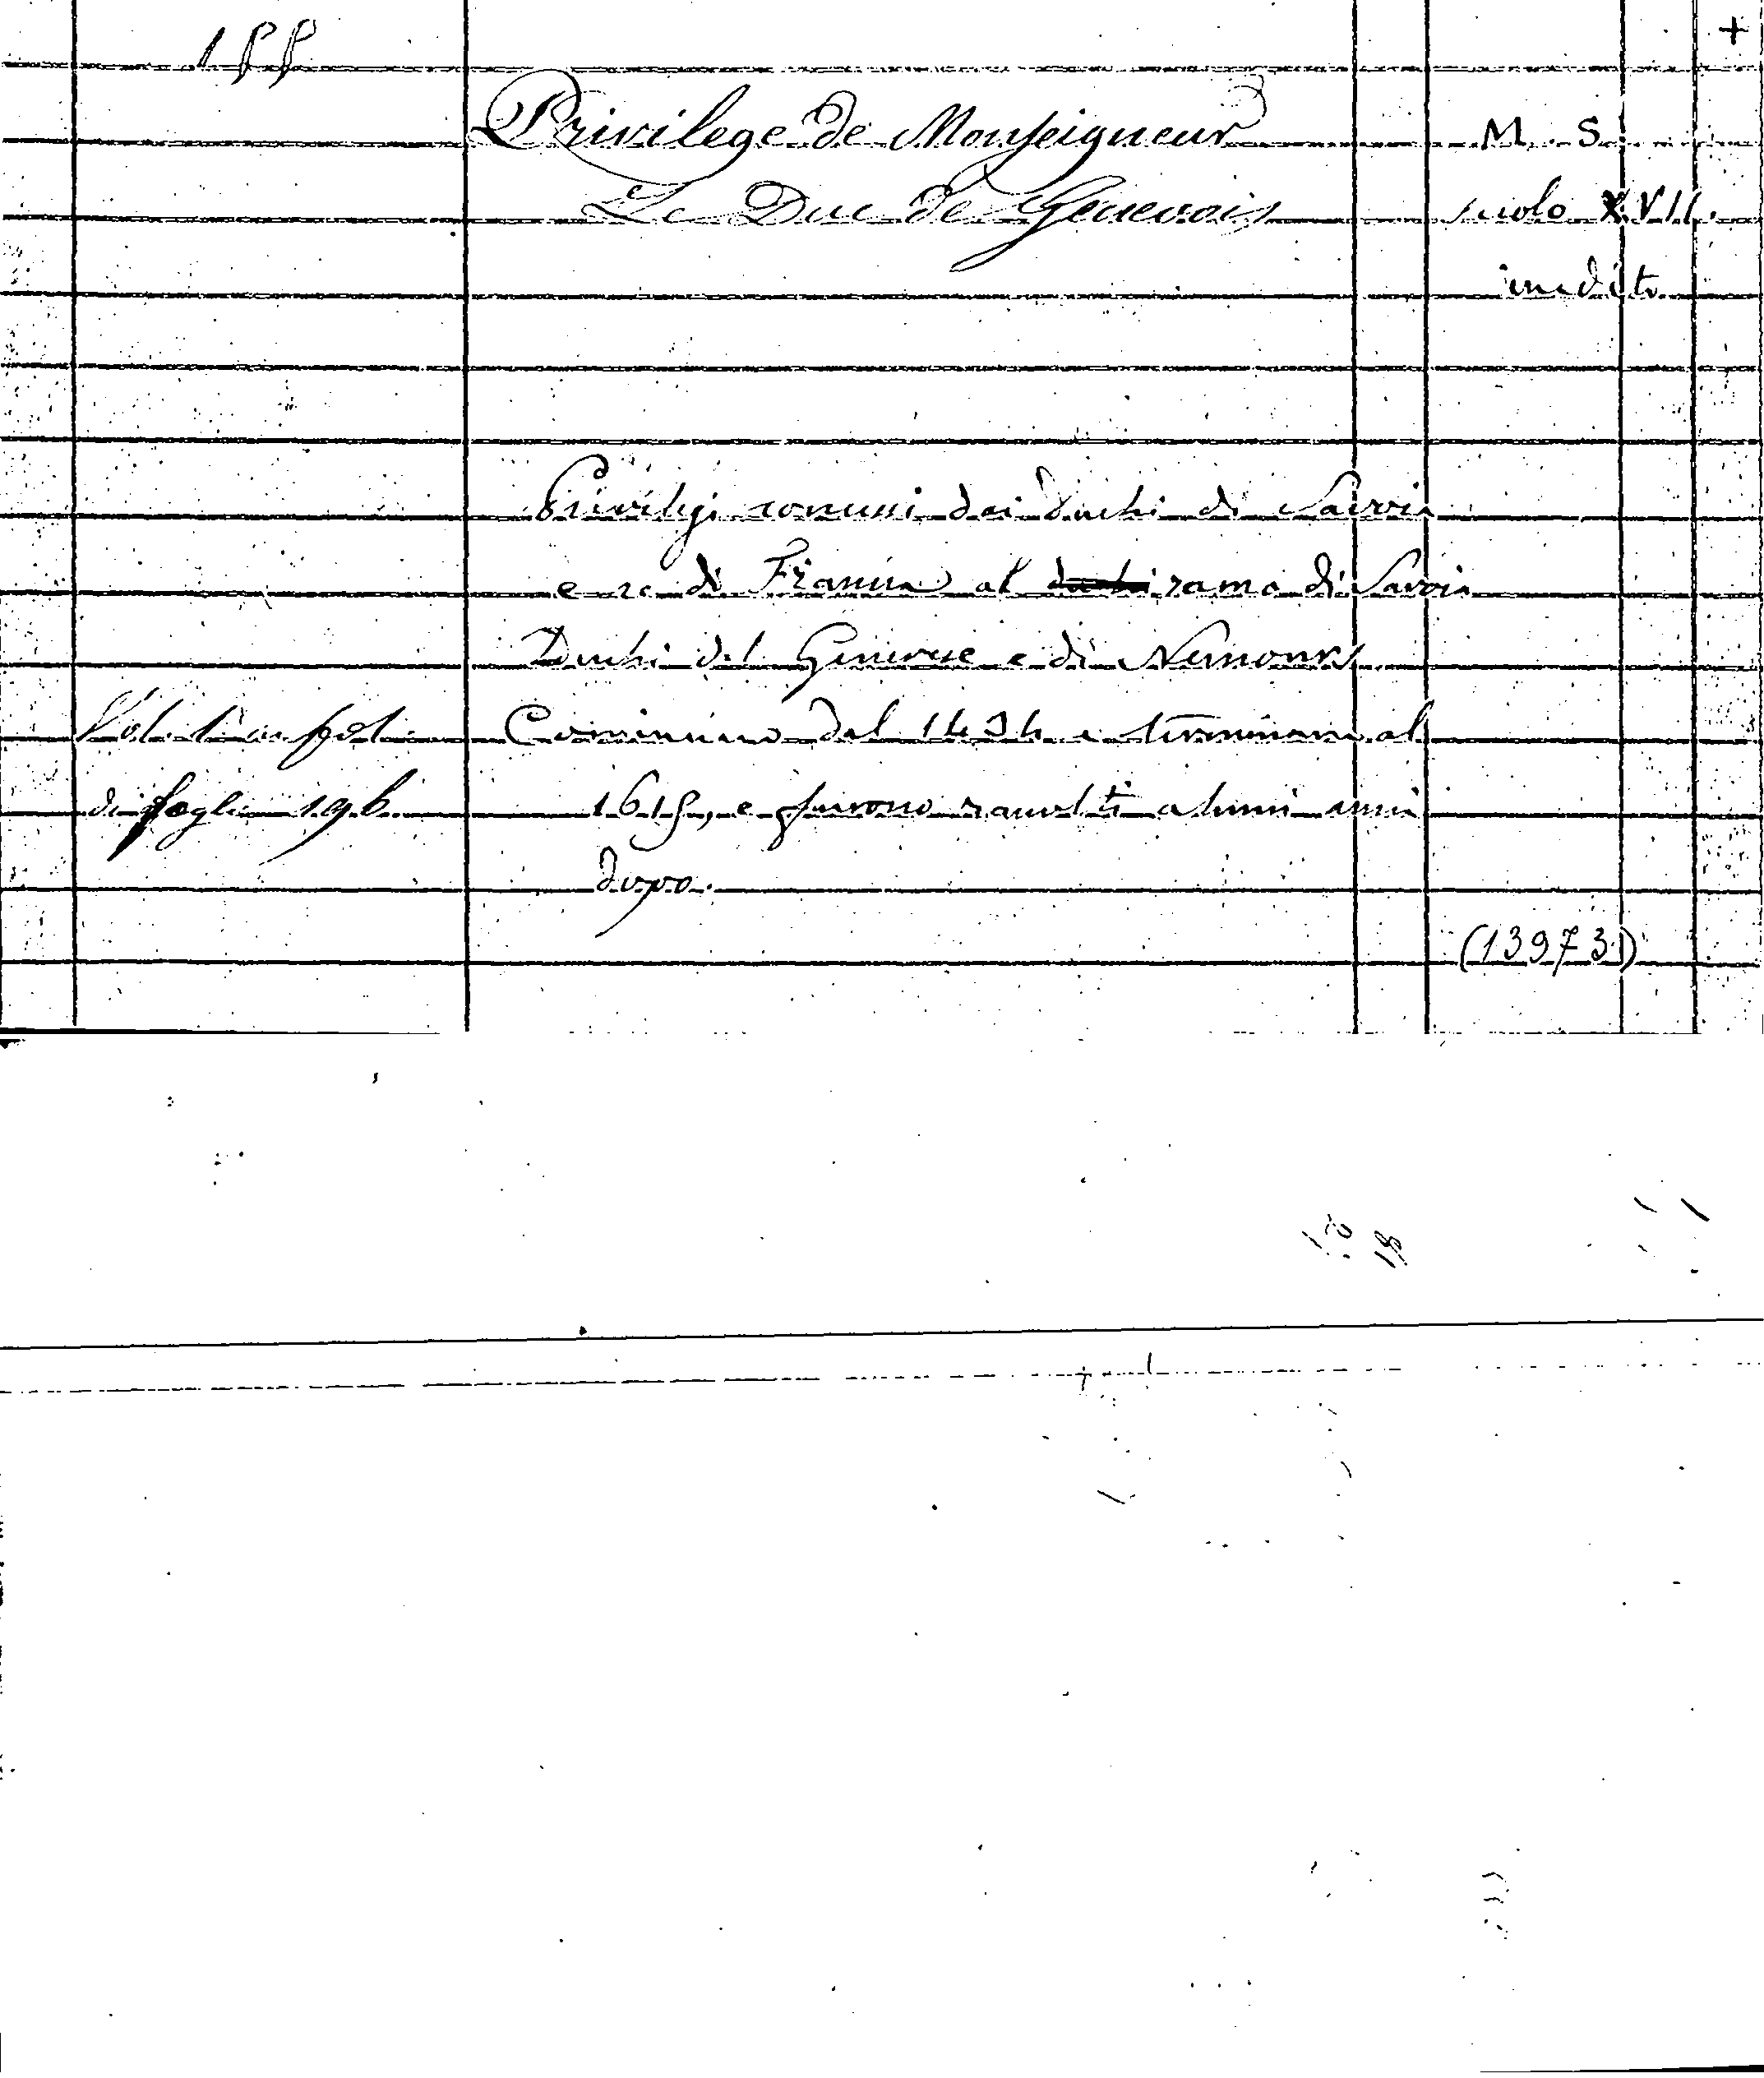 155
+
Privilege de Monseigneur
M. S.
Le Duc de Genevois
secolo XVII.
inedito
Privilegi concessi dai Duchi di Savoia
e re di Francia al ramo di Savoia
Duchi del Genevese e di Nemours
Vol. 1 in fol.
Cominciano dal 1434 e terminano al
di fogli 196
1615, e furono raccolti alcuni anni
dopo.
(13973)